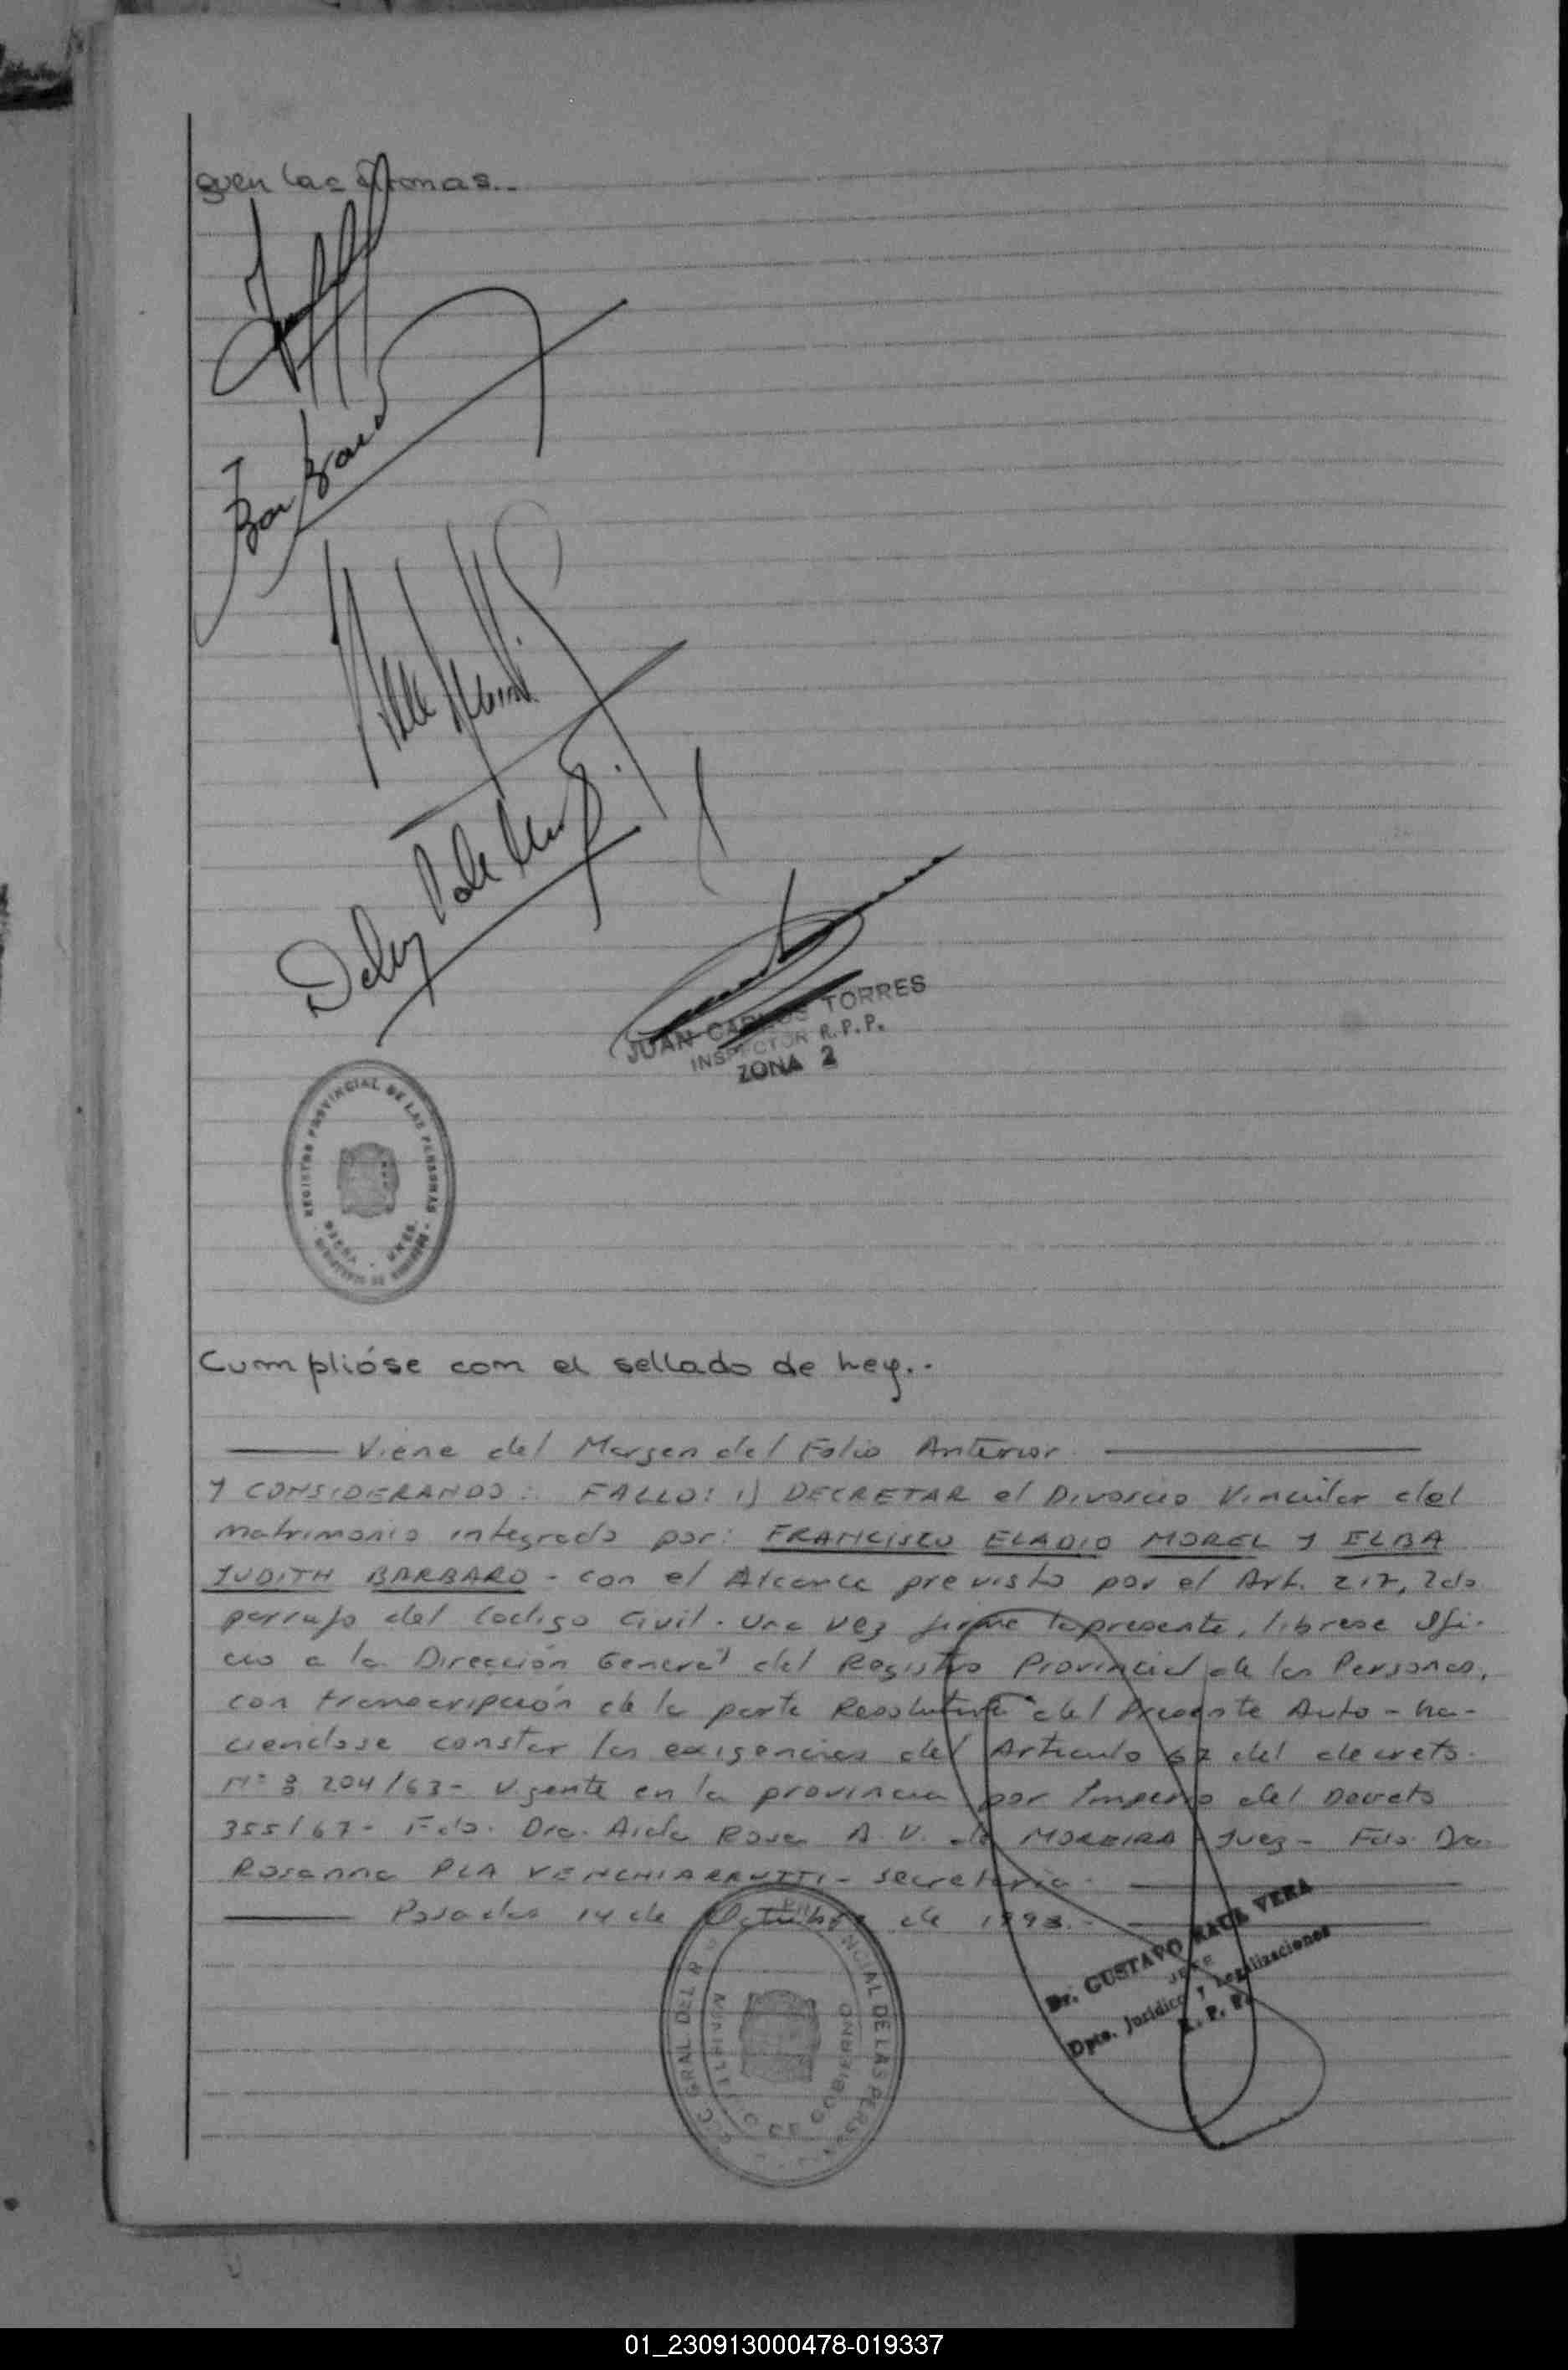 guen las firmas..
JUAN CARLOS TORRES
INSPECTOR R.P.P.
ZONA 2
REGISTRO PROVINCIAL DE LAS PERSONAS
Cumplióse con el sellado de Ley..
Viene del Margen del Folio Anterior
Y CONSIDERANDO: FALLO: 1) DECRETAR el Divorcio Vincular del
matrimonio integrado por: FRANCISCO ELADIO MOREL Y ELBA
JUDITH BARBARO - con el Alcance previsto por el Art. 217, 2do
parrafo del Codigo Civil. Una vez firme la presente, librese Ofi-
cio a la Dirección General del Registro Provincial de las Personas,
con transcripción de la parte Resolutiva del Presente Auto - ha-
ciendose constar las exigencias del Articulo 67 del decreto
Nº 8 204/63 - Vigente en la provincia por Imperio del Decreto
355/67 - Fdo. Dra. Aida Rosa A. V. de MOREIRA - Juez - Fdo. Dra.
Rosanna PLA VENCHIARRUTTI - secretaria -
Posadas 14 de Octubre de 1993.-
Dr. GUSTAVO RAUL VERA
JEFE
Dpto. Jurídico y Legalizaciones
R. P. P.
GRAL. DEL R PROVINCIAL DE LAS PERS
MINISTERIO DE GOBIERNO
01_230913000478-019337